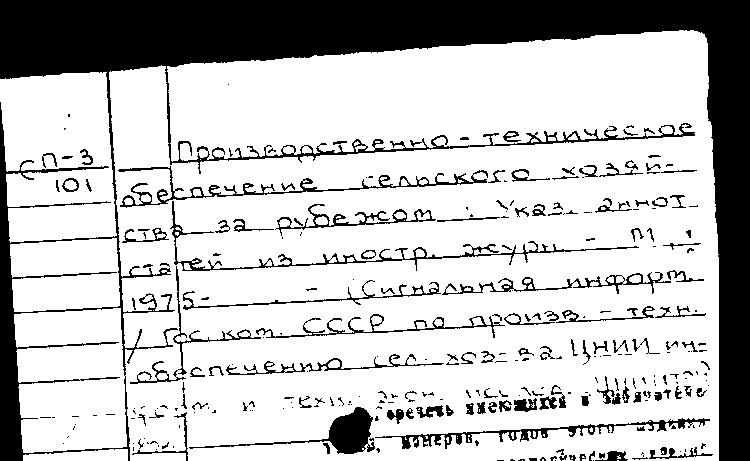 СП-3
101
Производственно-техническое
обеспечение сельского хозяй-
ства за рубежом : Указ. аннот
статей из иностр. журн. - М.,
1975- . - (Сигнальная информ.
/ Гос. ком. СССР по произв.-техн.
обеспечению сел. хоз-ва, ЦНИИ ин-
и техн.
имеющихся в библиотеке
номеров, годов этого издания